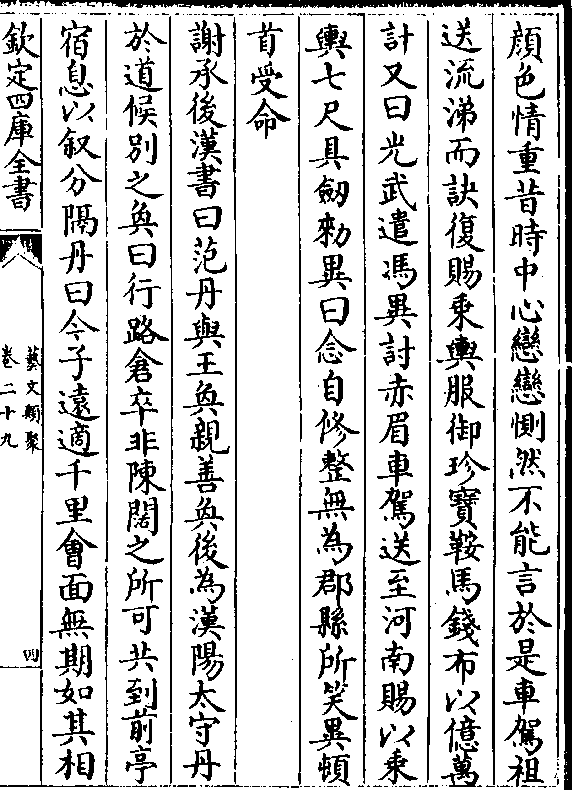 顔色情重昔時中心戀戀惻然不能言於是車駕祖
送流涕而訣復賜乗輿服御珍寳鞍馬錢布以億萬
計又曰光武遣馮異討赤眉車駕送至河南賜以乗
輿七尺具劒勑異曰念自修整無為郡縣所笑異頓
首受命
謝承後漢書曰范丹與王奐親善奐後為漢陽太守丹
於道候别之奐曰行路倉卒非陳闊之所可共到前亭
宿息以叙分隔丹曰今子逺適千里㑹面無期如其相
欽定四庫全書
藝文類聚
卷二十九
四